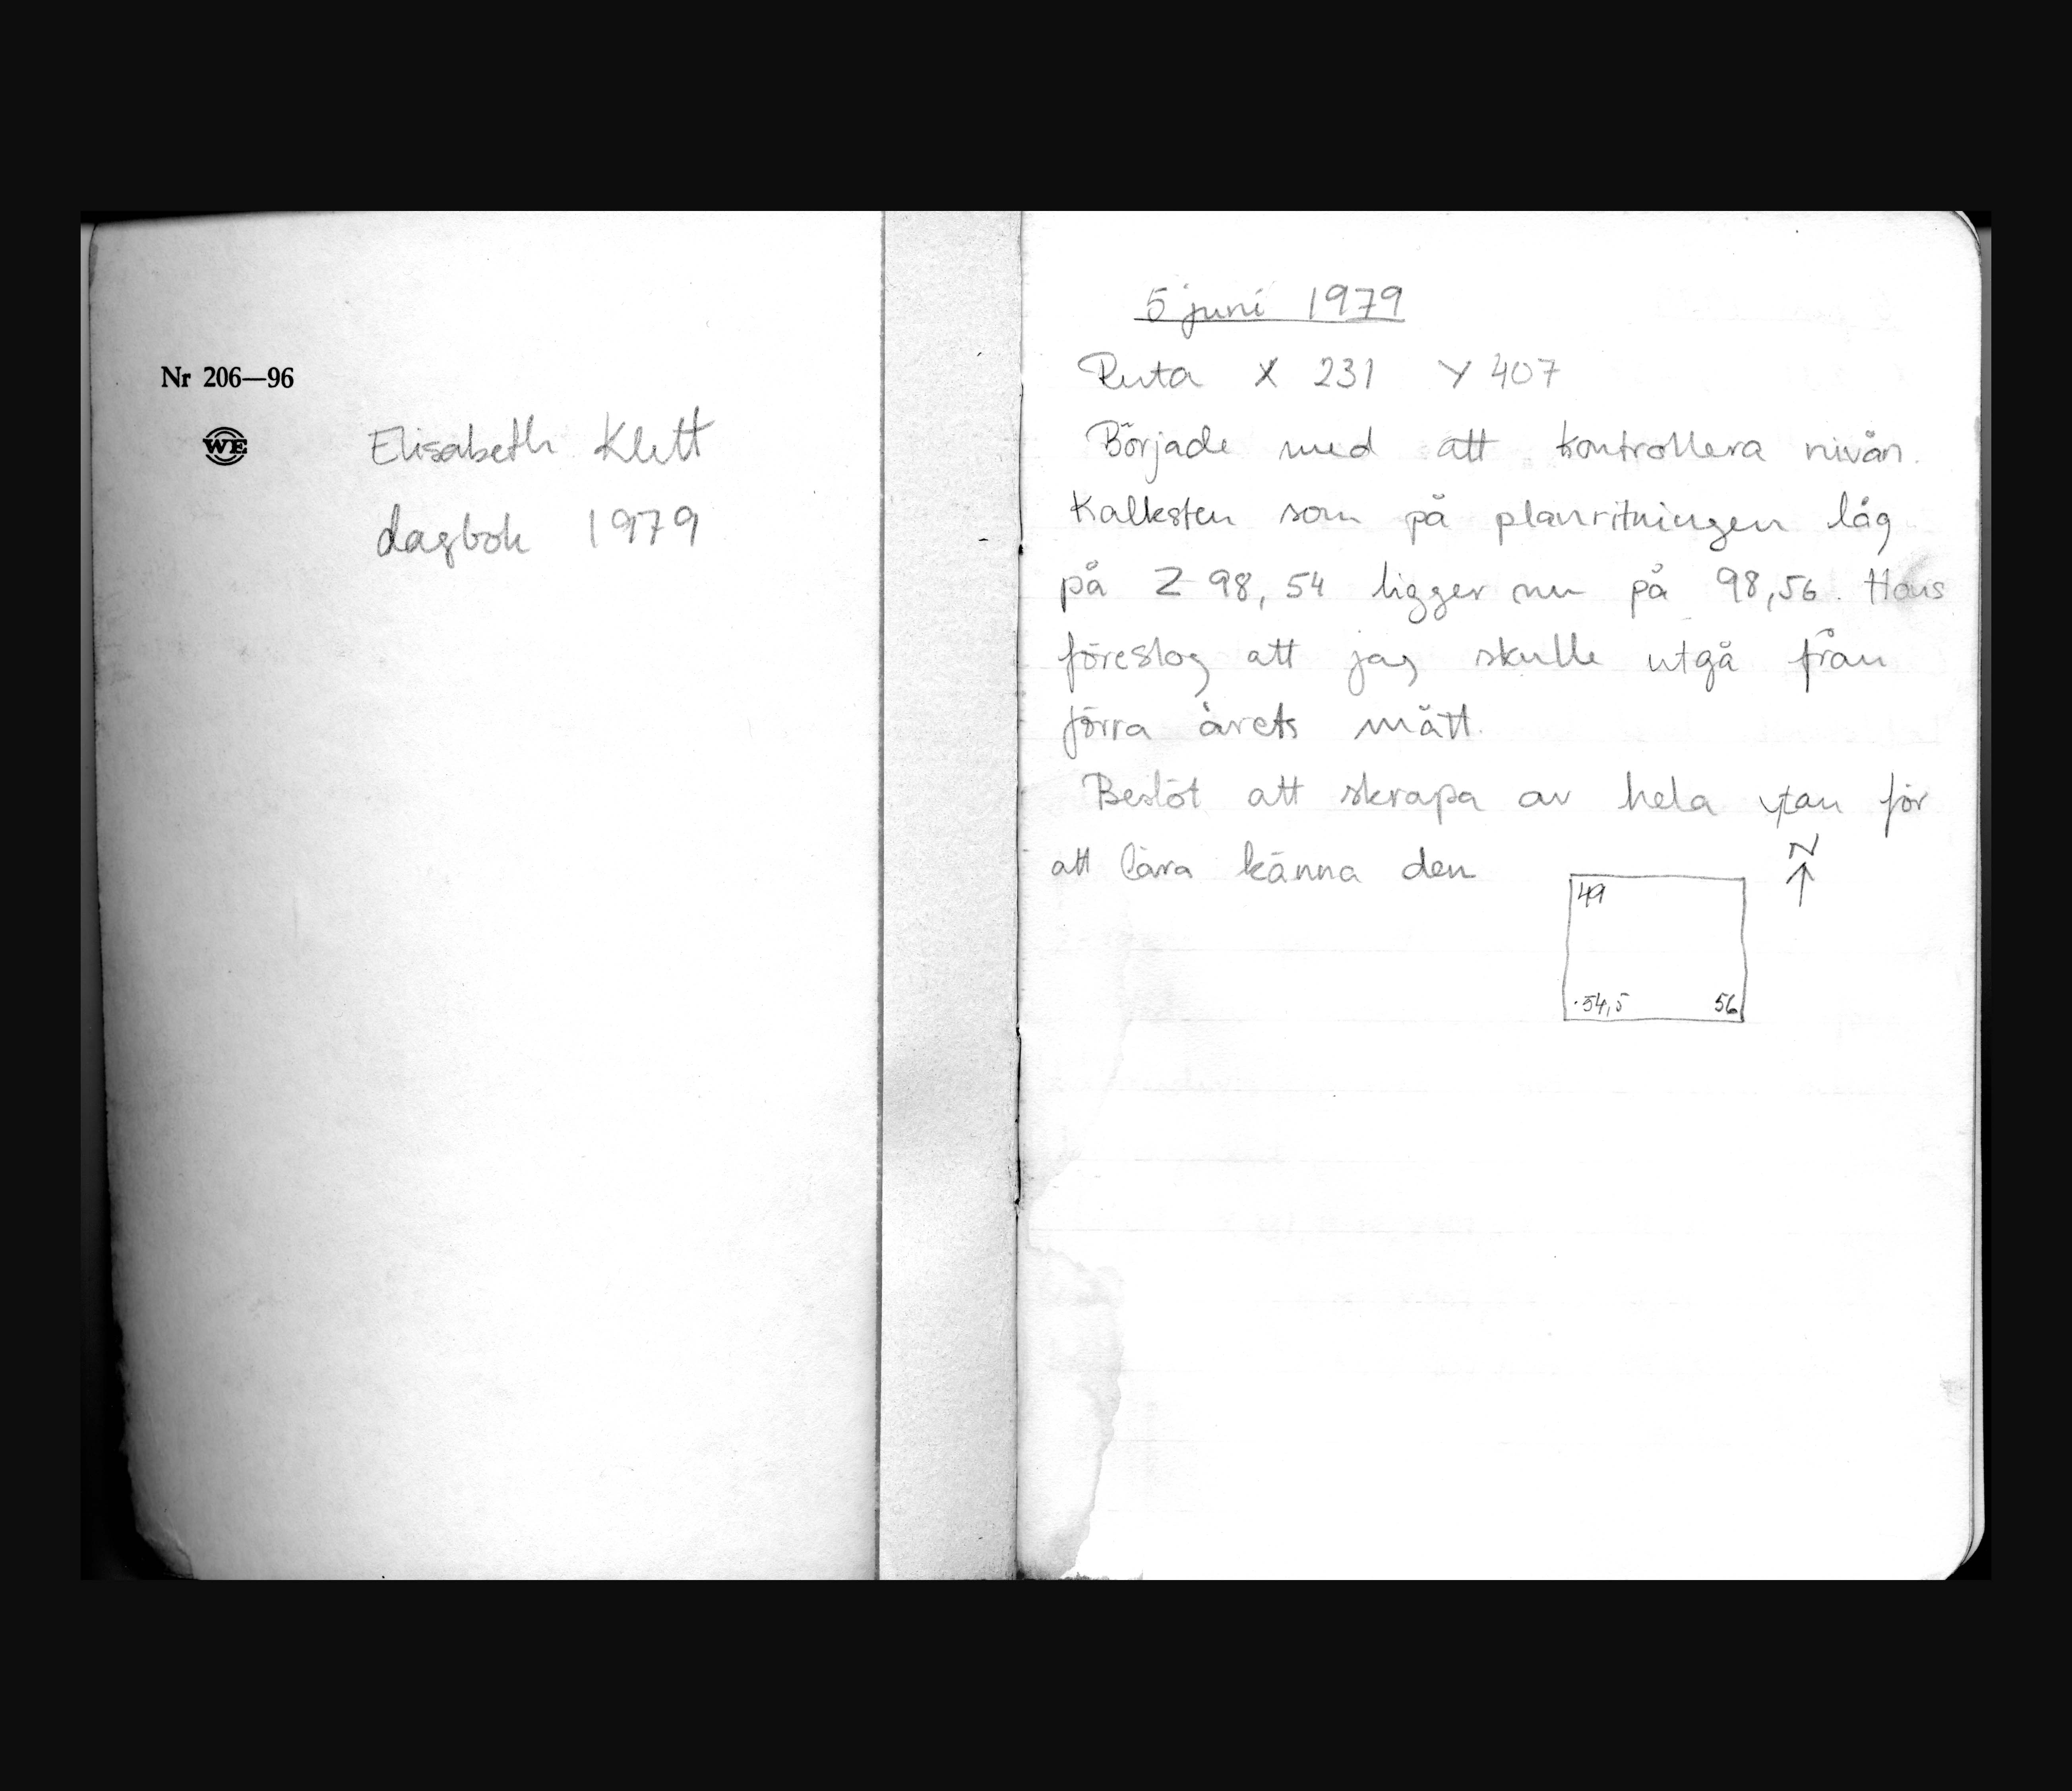 Nr 206—96
WE
Elisabeth Klett
dagbok 1979
5 juni 1979
Ruta X 231 Y 407
Började med att kontrollera nivån.
Kalksten som på planritningen låg
på Z 98,54 ligger nu på 98,56. Hans
föreslog att jag skulle utgå från
förra årets mått.
Beslöt att skrapa av hela ytan för
att lära känna den
N
49
54,5 56